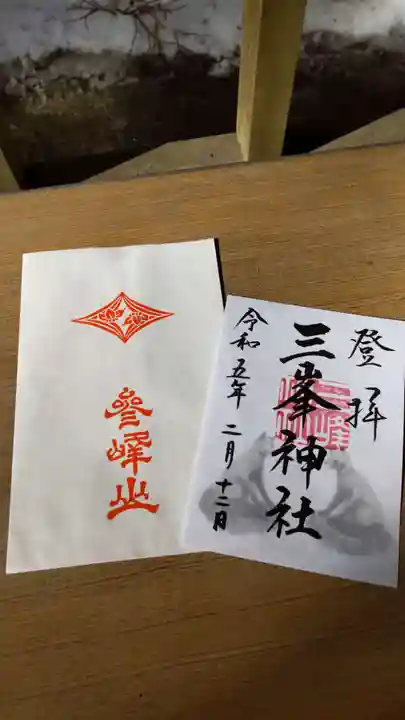 登拝
三峯神社
令和五年二月十二日
參峰山